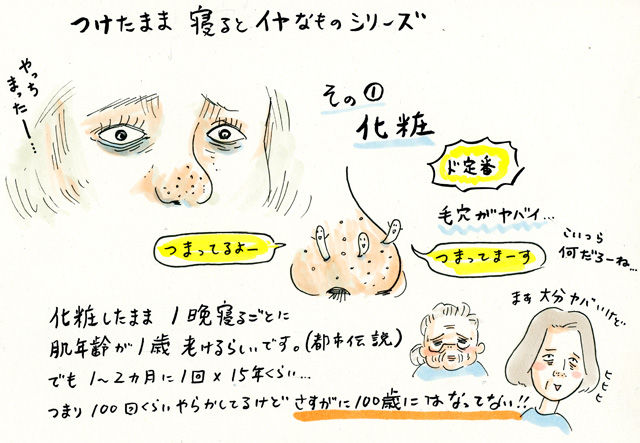 つけたまま 寝るとイヤなものシリーズ
やっち
まったー…
その①
化粧
ド定番
毛穴がヤバイ…
つまってるよー
つまってまーす
こいつら
何だろーね…
化粧したまま 1晩寝るごとに
肌年齢が1歳 老けるらしいです。(都市伝説)
でも 1〜2ヵ月に1回×15年くらい…
つまり100回くらいやらかしてるけど さすがに100歳にはなってない!!
まぁ 大分ヤバいけど
ヒヒヒ